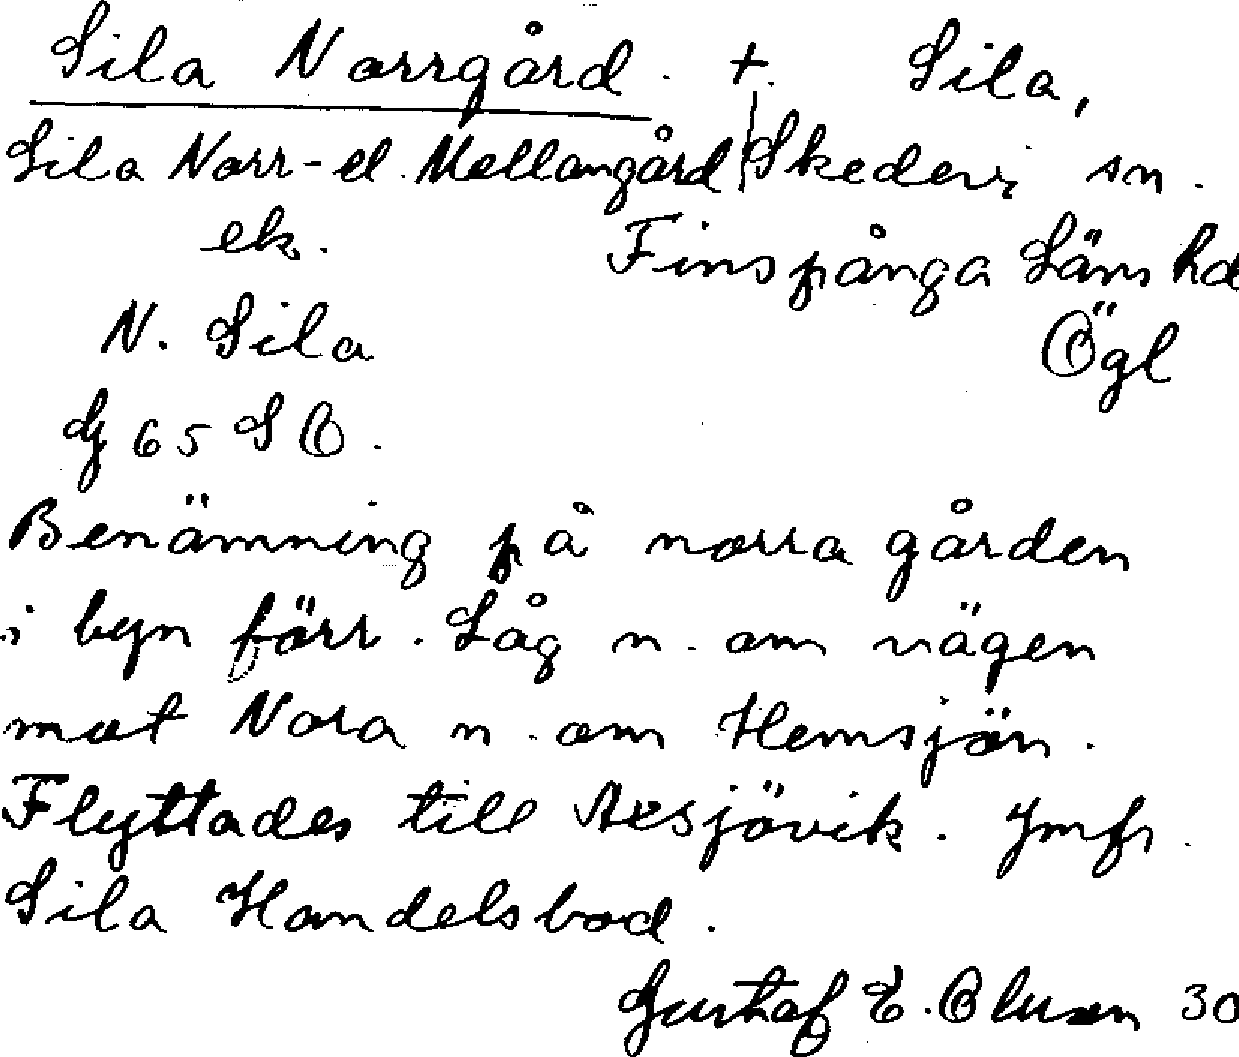 Sila Norrgård. +. Sila,
Sila Norr- el. Mellangård Skedevi sn.
ek. Finspånga Läns hd
N. Sila Ögl
G 65 SO.
Benämning på norra gården
i byn förr. Låg n. om vägen
mot Nora n. om Hemsjön.
Flyttades till Axsjövik. Jmfr.
Sila Handelsbod.
Gustaf E. Olsson 30